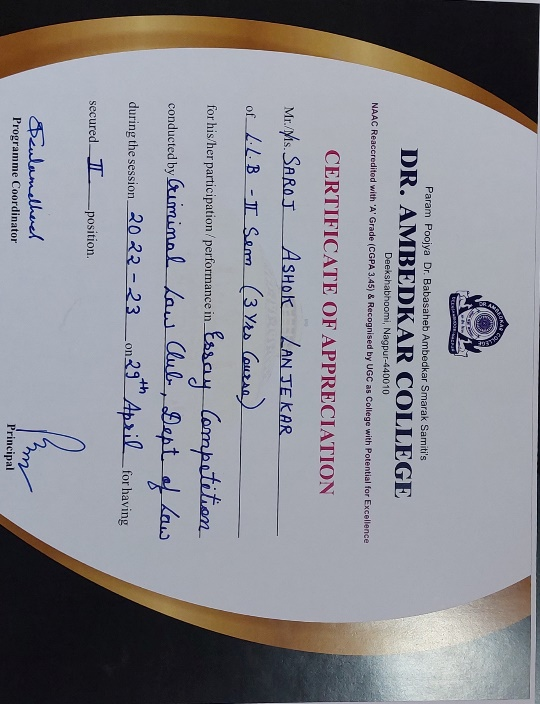 Param Poojya Dr. Babasaheb Ambedkar Smarak Samiti's
DR. AMBEDKAR COLLEGE
Deekshabhoomi, Nagpur-440010
NAAC Reaccredited with 'A' Grade (CGPA 3.45) & Recognised by UGC as College with Potential for Excellence
CERTIFICATE OF APPRECIATION
Mr./Ms. SAROJ ASHOK LANJEKAR
of L.L.B - II Sem (3 Yrs Course)
for his/her participation / performance in Essay Competition
conducted by Criminal Law Club, Dept of Law
during the session 2022-23 on 29th April for having
secured II position.
Programme Coordinator
Principal